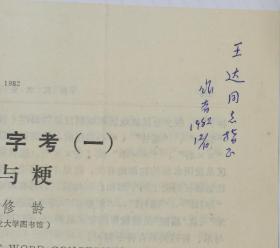 1982
字考(一)
与粳
修龄
大学图书馆)
王达同志指正
1982
12/6